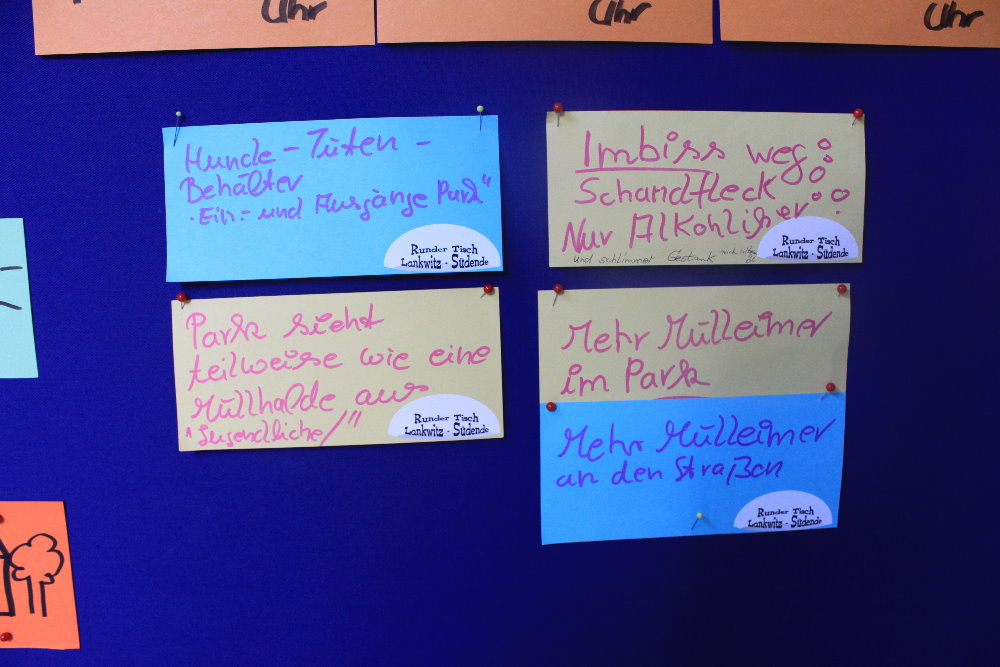 Uhr
Uhr
Uhr
Hunde - Tüten -
Behälter
"Ein- und Ausgänge Park"
Runder Tisch
Lankwitz - Südende
Imbiss weg
Schandfleck
Nur Alkoholiker
und schlimmer Gestank
Runder Tisch
Lankwitz - Südende
Park sieht
teilweise wie eine
Müllhalde aus
"Jugendliche/"
Runder Tisch
Lankwitz - Südende
Mehr Mülleimer
im Park
Mehr Mülleimer
an den Straßen
Runder Tisch
Lankwitz - Südende